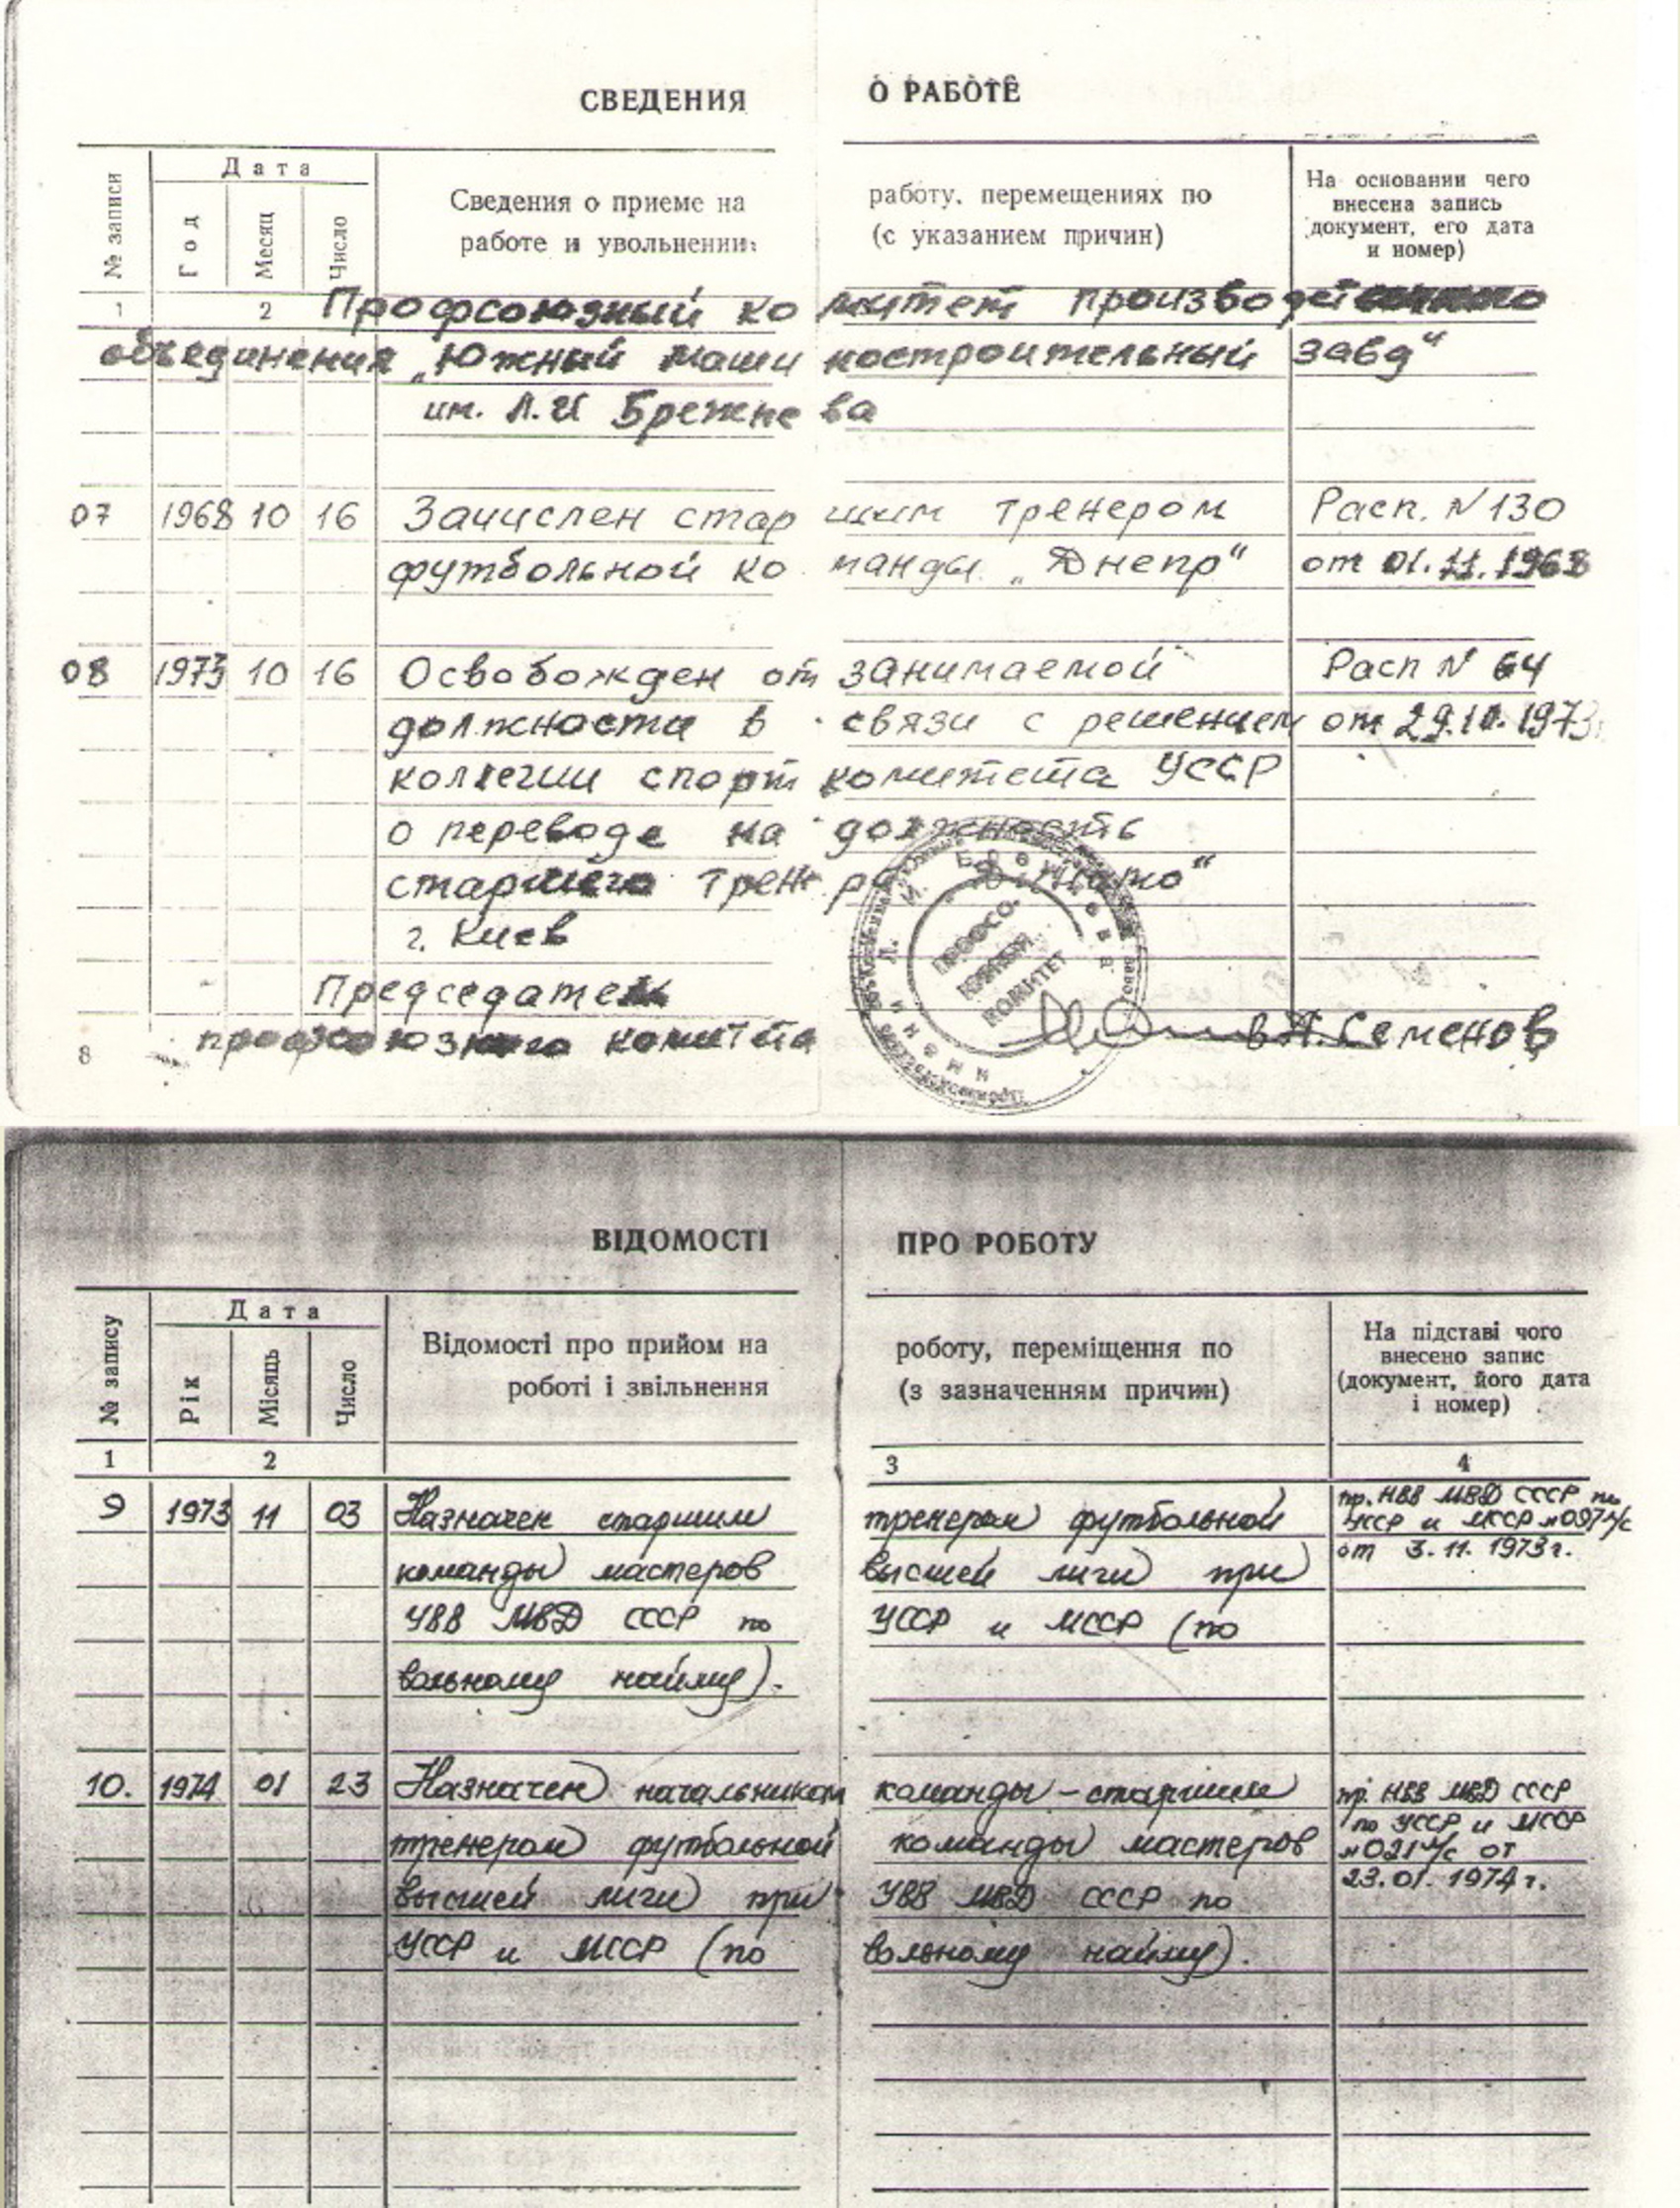 СВЕДЕНИЯ О РАБОТЕ
№ записи
Дата
Год
Месяц
Число
Сведения о приеме на работу, перемещениях по
работе и увольнении (с указанием причин)
На основании чего
внесена запись
документ, его дата
и номер)
1 2
Профсоюзный комитет
объединения „Южный машиностроительный завд"
им. Л.И Брежнева
07 1968 10 16 Зачислен старшим тренером Расп. N 130
футбольной команды „Днепр" от 01.11.1968
08 1973 10 16 Освобожден от занимаемой Расп N 64
должности в связи с решением от 29.10.1973
коллегии спорткомитета УССР
о переводе на должность
старшего "
г. Киев
Председатель
профсоюзного комитета Семенов
ПРОФСО
КОМИТЕТ
8
ВІДОМОСТІ ПРО РОБОТУ
№ запису
Дата
Рік
Місяць
Число
Відомості про прийом на роботу, переміщення по
роботі і звільнення (з зазначенням причин)
На підставі чого
внесено запис
(документ, його дата
і номер)
1 2 3 4
9 1973 11 03 Назначен старшим тренером футбольной пр. НВВ МВД СССР по
команды мастеров высшей лиги при УССР и МССР
УВВ МВД СССР по УССР и МССР (по от 3.11.1973г.
вольному найму).
10. 1974 01 23 Назначен начальником команды – старшим пр. НВВ МВД СССР
тренером футбольной команды мастеров по УССР и МССР
высшей лиги при УВВ МВД СССР по №021 л/с от
УССР и МССР (по вольному найму). 23.01.1974г.